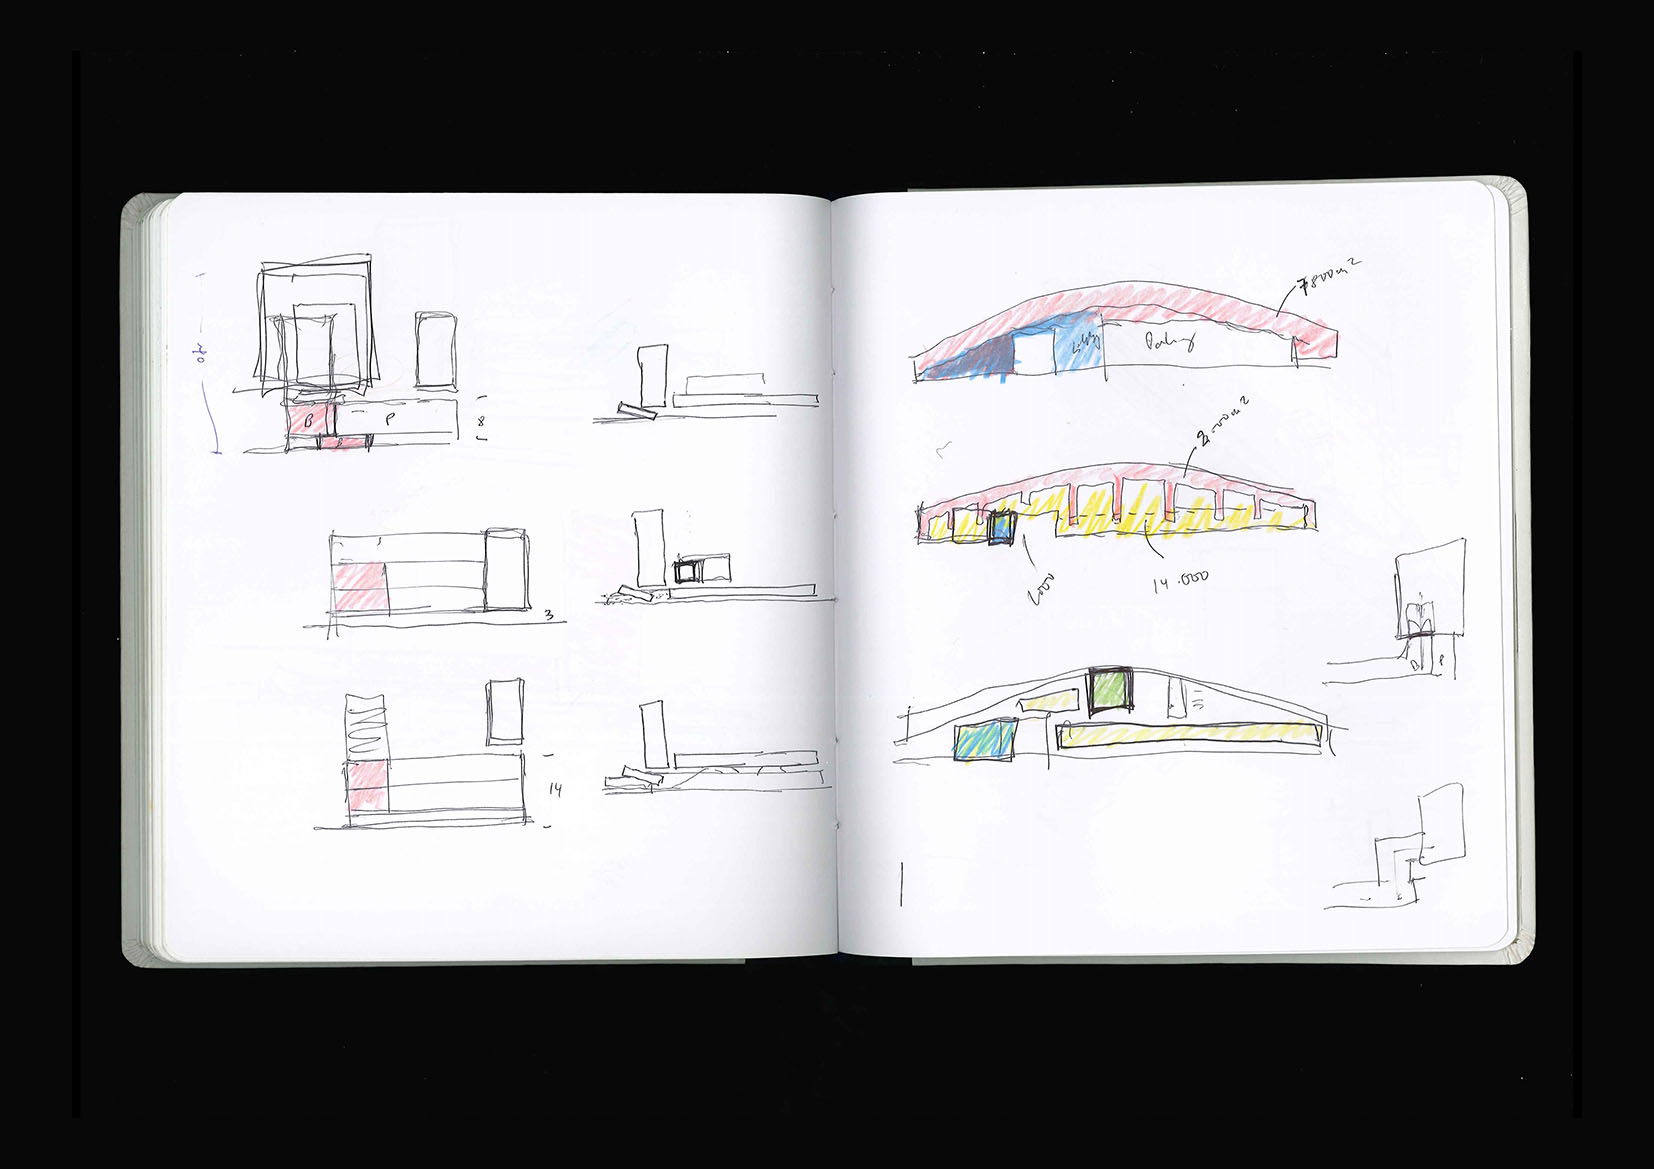 40
B
P
8
3
14
7800m²
Parking
2.000m²
2000
14.000
B
P